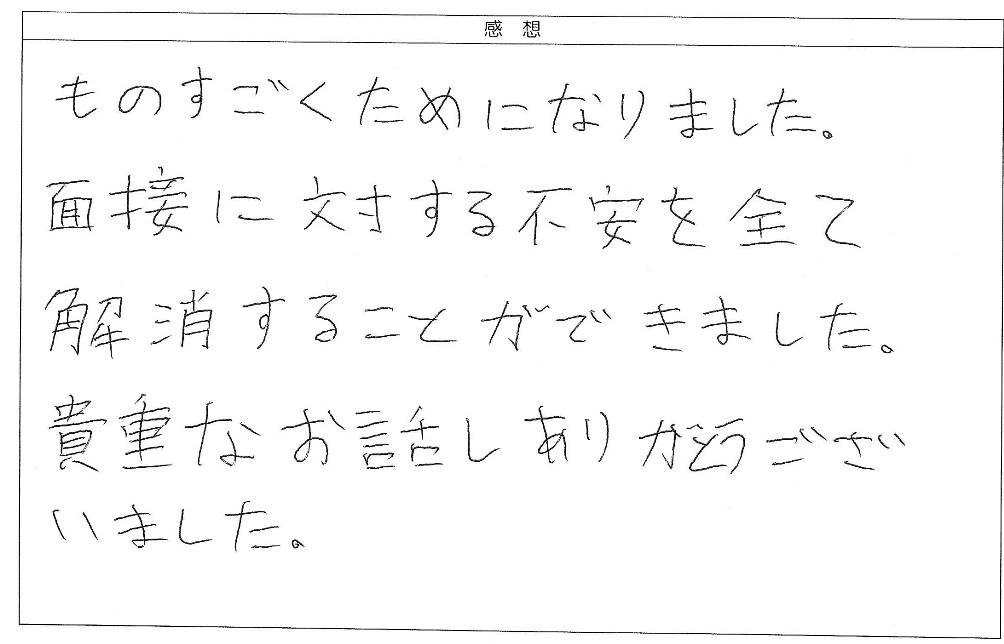 感想
ものすごくためになりました。
面接に対する不安を全て
解消することができました。
貴重なお話しありがとうござい
いました。